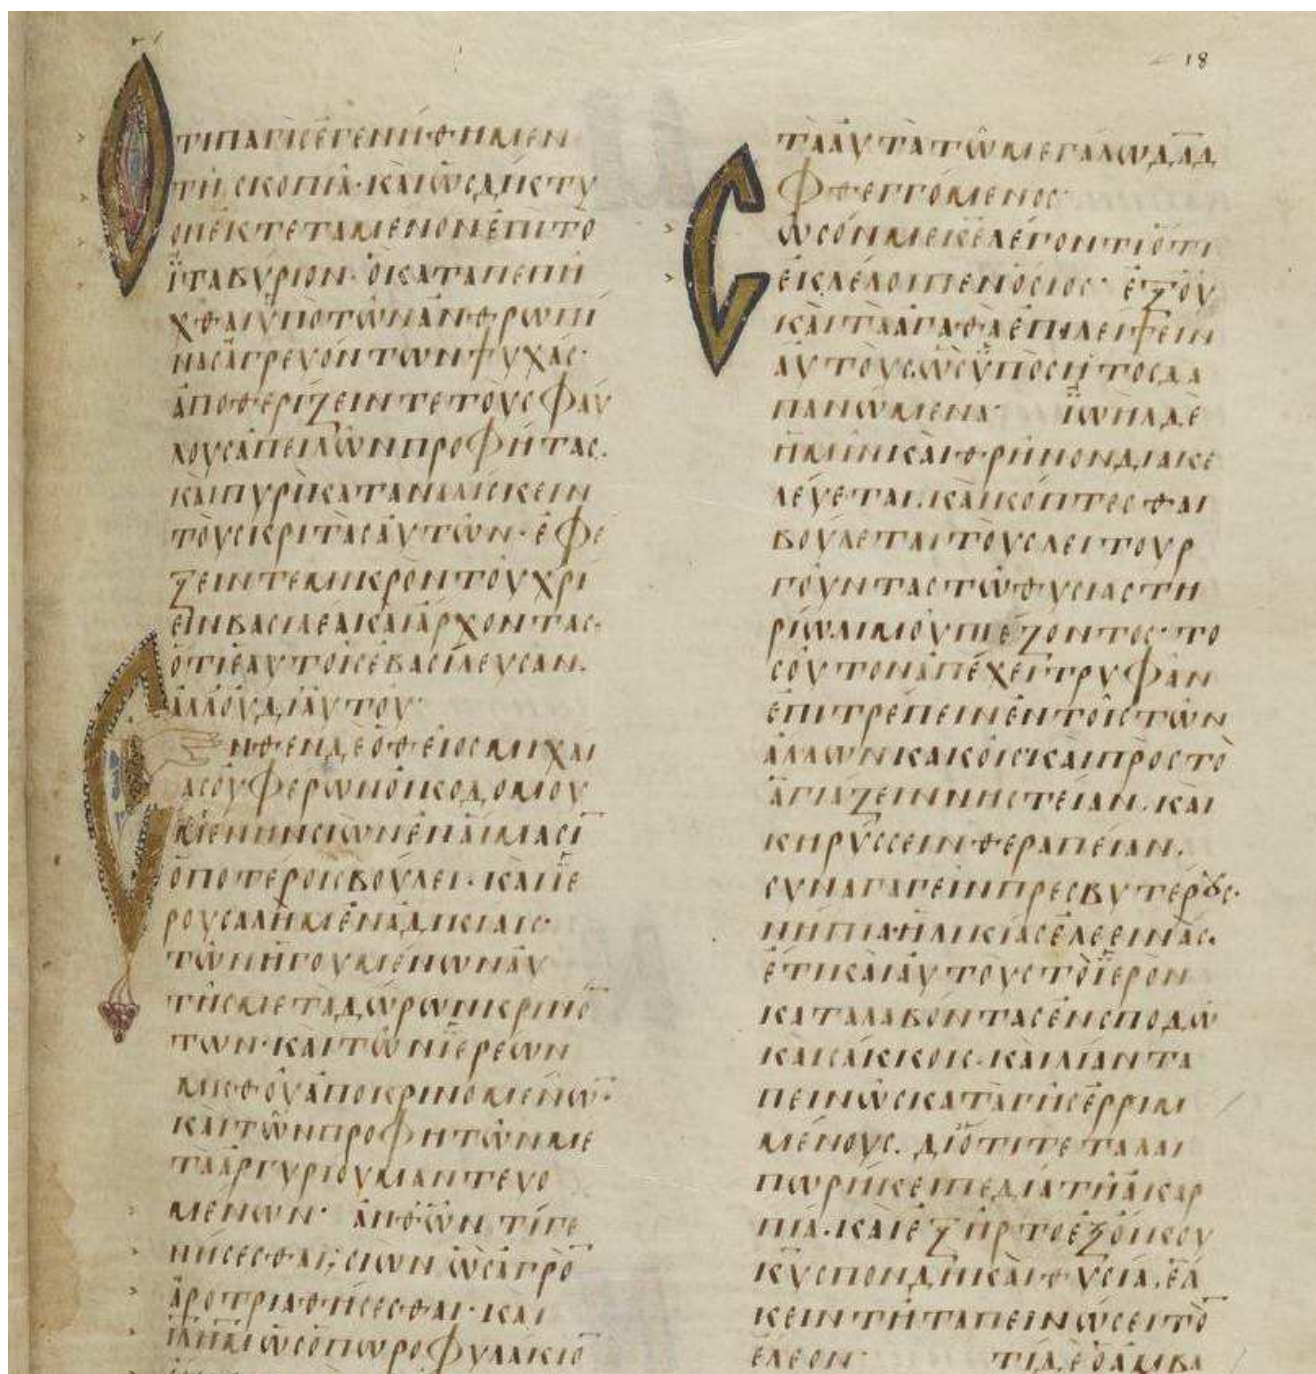 18
ΟΤΙ ΠΑΓΙϹ ΕΓΕΝΗΘΗΜΕΝ
ΤΗ ϹΚΟΠΙΑ· ΚΑΙ ΩϹ ΔΙΚΤΥ
ΟΝ ΕΚΤΕΤΑΜΕΝΟΝ ΕΠΙ ΤΟ
ΪΤΑΒΥΡΙΟΝ· Ο ΚΑΤΑΠΕΠΗ
ΧΘΑΙ ΥΠΟ ΤΩΝ ΑΝΘΡΩΠΙ
ΝΑϹ ΑΓΡΕΥΟΝΤΩΝ ΨΥΧΑϹ·
ΑΠΟΘΕΡΙΖΕΙΝ ΤΕ ΤΟΥϹ ΦΑΥ
ΛΟΥϹ ΑΠΕΙΛΩΝ ΠΡΟΦΗΤΑϹ.
ΚΑΙ ΠΥΡΙ ΚΑΤΑΝΑΛΙϹΚΕΙΝ
ΤΟΥϹ ΚΡΙΤΑϹ ΑΥΤΩΝ· ΕΦΕ
ΞΕΙΝ ΤΕ ΜΙΚΡΟΝ ΤΟΥ ΧΡΙ
ΕΙΝ ΒΑϹΙΛΕΑ ΚΑΙ ΑΡΧΟΝΤΑϹ·
ΟΤΙ ΕΑΥΤΟΙϹ ΕΒΑϹΙΛΕΥϹΑΝ.
ΑΛΛ ΟΥ ΔΙ ΑΥΤΟΥ·
ΕΝΘΕΝΔΕ Ο ΘΕΙΟϹ ΜΙΧΑΙ
ΑϹ ΟΥ ΦΕΡΩΝ ΟΙΚΟΔΟΜΟΥ
ΜΕΝΗΝ ϹΙΩΝ ΕΝ ΑΙΜΑϹῙ
ΟΠΟΤΕΡΟΙϹ ΒΟΥΛΕΙ· ΚΑΙ ΪΕ
ΡΟΥϹΑΛΗΜ ΕΝ ΑΔΙΚΙΑΙϹ·
ΤΩΝ ΗΓΟΥΜΕΝΩΝ ΑΥ
ΤΗϹ ΜΕΤΑ ΔΩΡΩΝ ΚΡΙΝΟ̄
ΤΩΝ· ΚΑΙ ΤΩΝ ΪΕΡΕΩΝ
ΜΙϹΘΟΥ ΑΠΟΚΡΙΝΟΜΕΝΩ̄·
ΚΑΙ ΤΩΝ ΠΡΟΦΗΤΩΝ ΜΕ
ΤΑ ΑΡΓΥΡΙΟΥ ΜΑΝΤΕΥΟ
ΜΕΝΩΝ· ΑΝΘ ΩΝ, ΤΙ ΓΕ
ΝΗϹΕϹΘΑΙ; ϹΙΩΝ ΩϹ ΑΓΡΟ̄
ΑΡΟΤΡΙΑΘΗϹΕϹΘΑΙ· ΚΑΙ
ῙΛΗ̄Μ ΩϹ ΟΠΩΡΟΦΥΛΑΚΙΟ̄
ΤΑ ΑΥΤΑ ΤΩ ΜΕΓΑΛΩ Δ̄Δ̄
ΦΘΕΓΓΟΜΕΝΟϹ·
ϹΩϹΟΝ ΜΕ Κ̄Ε̄ ΛΕΓΟΝΤΙ ΟΤΙ
ΕΚΛΕΛΟΙΠΕΝ ΟϹΙΟϹ· ΕΞ ΟΥ
ΚΑΙ ΤΑ ΑΓΑΘΑ ΕΠΙΛΕΙΨΕΙΝ
ΑΥΤΟΥϹ, ΩϹ ΥΠΟ ϹΗΤΟϹ ΔΑ
ΠΑΝΩΜΕΝΑ· ΪΩΗΛ ΔΕ
ΗΜΙΝ ΚΑΙ ΘΡΗΝΟΝ ΔΙΑΚΕ
ΛΕΥΕΤΑΙ. ΚΑΙ ΚΟΠΤΕϹΘΑΙ
ΒΟΥΛΕΤΑΙ ΤΟΥϹ ΛΕΙΤΟΥΡ
ΓΟΥΝΤΑϹ ΤΩ ΘΥϹΙΑϹΤΗ
ΡΙΩ ΛΙΜΟΥ ΠΙΕΖΟΝΤΟϹ· ΤΟ
ϹΟΥΤΟΝ ΑΠΕΧΕΙ ΤΡΥΦΑΝ
ΕΠΙΤΡΕΠΕΙΝ ΕΝ ΤΟΙϹ ΤΩΝ
ΑΛΛΩΝ ΚΑΚΟΙϹ· ΚΑΙ ΠΡΟϹ ΤΟ
ΑΓΙΑΖΕΙΝ ΝΗϹΤΕΙΑΝ. ΚΑΙ
ΚΗΡΥϹϹΕΙΝ ΘΕΡΑΠΕΙΑΝ.
ϹΥΝΑΓΑΓΕΙΝ ΠΡΕϹΒΥΤΕΡȢϹ·
ΝΗΠΙΑ ΗΛΙΚΙΑϹ ΕΛΕΕΙΝΑϹ.
ΕΤΙ ΚΑΙ ΑΥΤΟΥϹ ΤΟ ΪΕΡΟΝ
ΚΑΤΑΛΑΒΟΝΤΑϹ ΕΝ ϹΠΟΔΩ
ΚΑΙ ϹΑΚΚΟΙϹ. ΚΑΙ ΛΙΑΝ ΤΑ
ΠΕΙΝΩϹ ΚΑΤΑ ΓΗϹ ΕΡΡΙΜ
ΜΕΝΟΥϹ. ΔΙΟΤΙ ΤΕΤΑΛΑΙ
ΠΩΡΗΚΕ ΠΕΔΙΑ ΤΗ ΑΚΑΡ
ΠΙΑ· ΚΑΙ ΕΞΗΡΤΟ ΕΞ ΟΙΚΟΥ
Κ̄Ῡ ϹΠΟΝΔΗ ΚΑΙ ΘΥϹΙΑ. ΕΛ
ΚΕΙΝ ΤΗ ΤΑΠΕΙΝΩϹΕΙ ΤΟ̄
ΕΛΕΟΝ· ΤΙ Δ Ε Ο ΑΜΒΑ